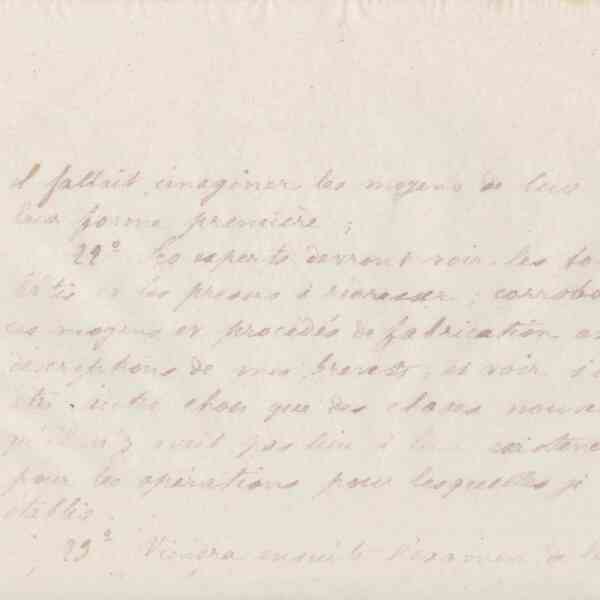 il fallait imaginer les moyens de leur
leur forme première ;
22º Les experts devront voir les
et les presses à redresser ; corrobo
ces moyens et procédés de fabrication a
descriptions de mes brevets, et voir
autre chose que des choses nouv
qu'il n'y avait pas lieu à existen
pour les opérations pour lesquelles j
établis.
23º Viendra ensuite l'examen de